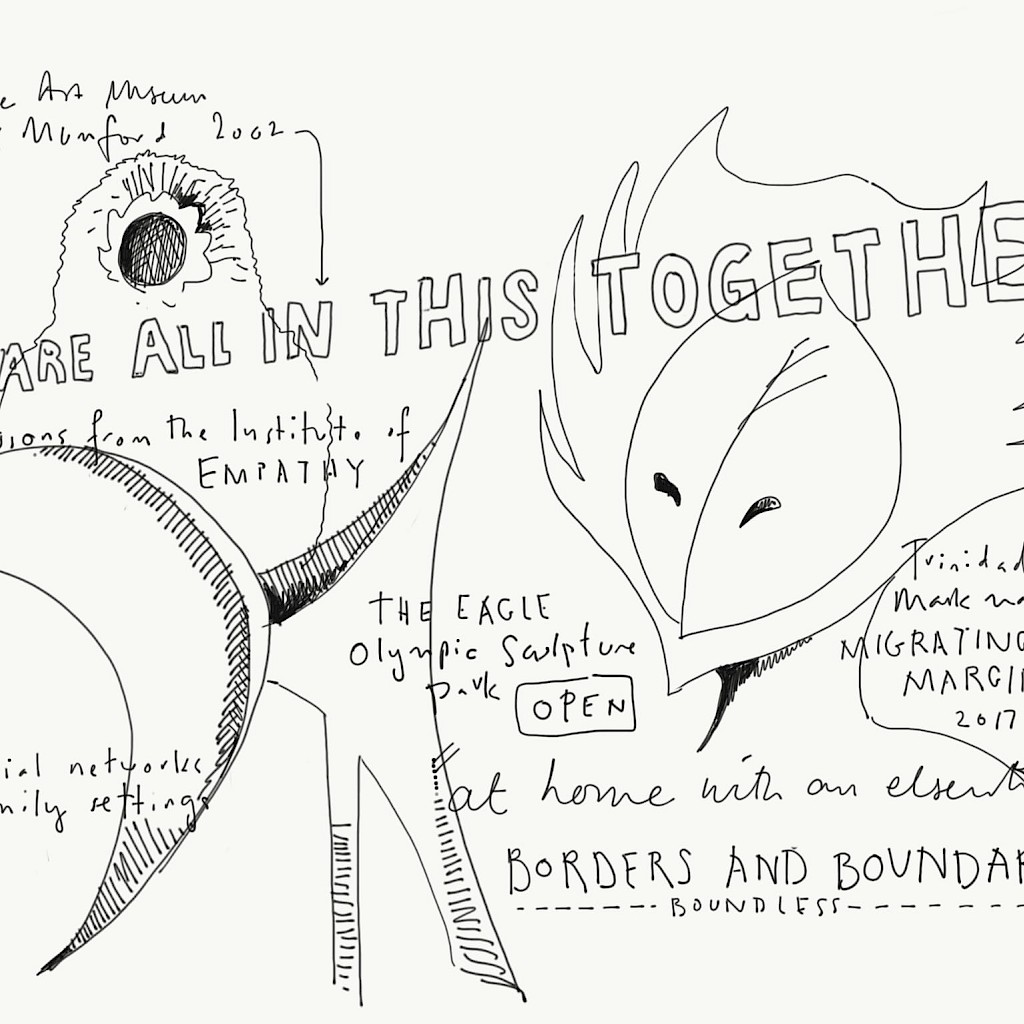 Art Museum
Munford 2002
ARE ALL IN THIS TOGETHE
from the Institute of
EMPATHY
THE EAGLE
Olympic Sculpture
park OPEN
Trinidad
Mark
MIGRATING
MARGI
2017
ial networks
mily settings
at home with an
BORDERS AND BOUNDAR
BOUNDLESS